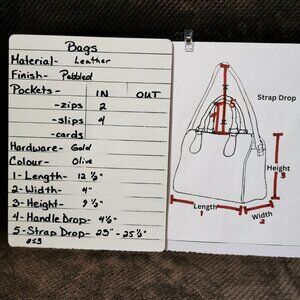 Bags
Material- Leather
Finish- Pebbled
Pockets- IN OUT
-zips 2
-slips 4
-cards
Hardware- Gold
Colour- Olive
1-Length- 12 ½"
2-Width- 4"
3-Height- 9 ½"
4-Handle Drop- 4½"
5-Strap Drop- 23" - 25½"
053
Strap Drop
5
4
Height
3
Length
1
Width
2